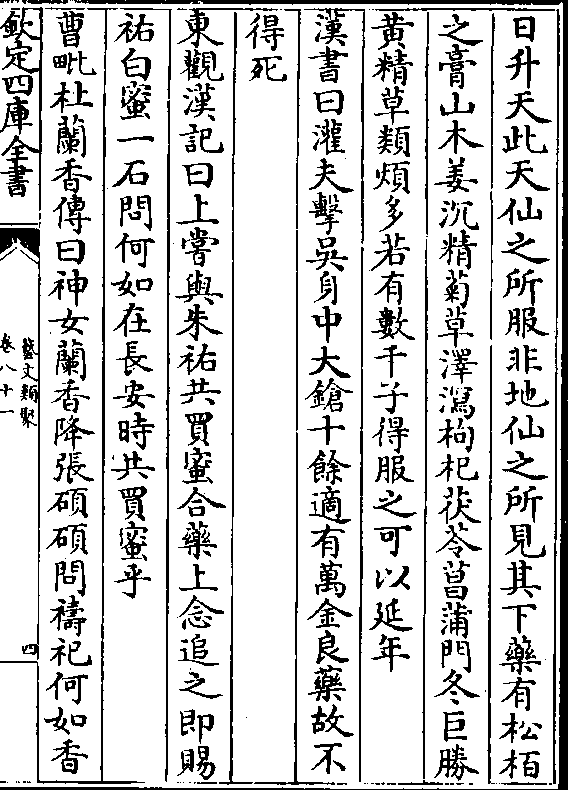 日升天此天仙之所服非地仙之所見其下藥有松栢
之膏山木姜沉精菊草澤瀉枸杞茯苓菖蒲門冬巨勝
黄精草類煩多若有數千子得服之可以延年
漢書曰灌夫擊吳身中大鎗十餘適有萬金良藥故不
得死
東觀漢記曰上嘗與朱祐共買蜜合藥上念追之即賜
祐白蜜一石問何如在長安時共買蜜乎
曹毗杜蘭香傳曰神女蘭香降張碩碩問禱祀何如香
欽定四庫全書
藝文類聚
卷八十一
四